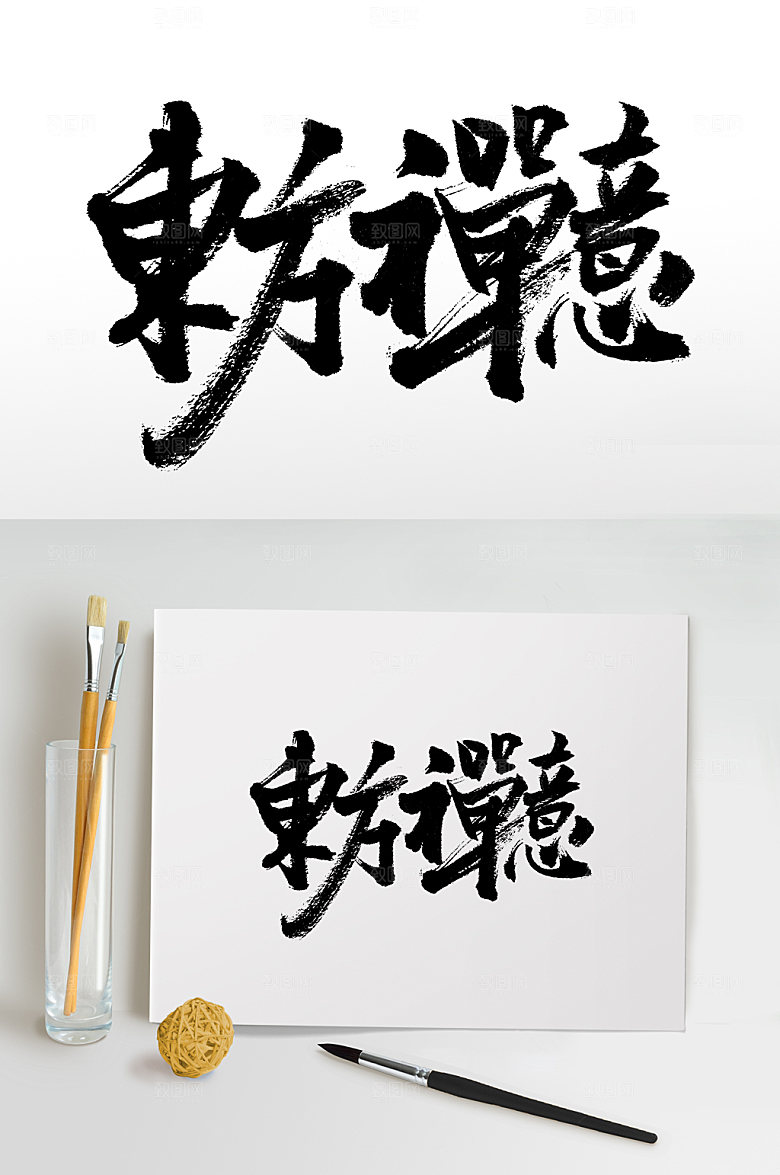 東方禪意
東方禪意